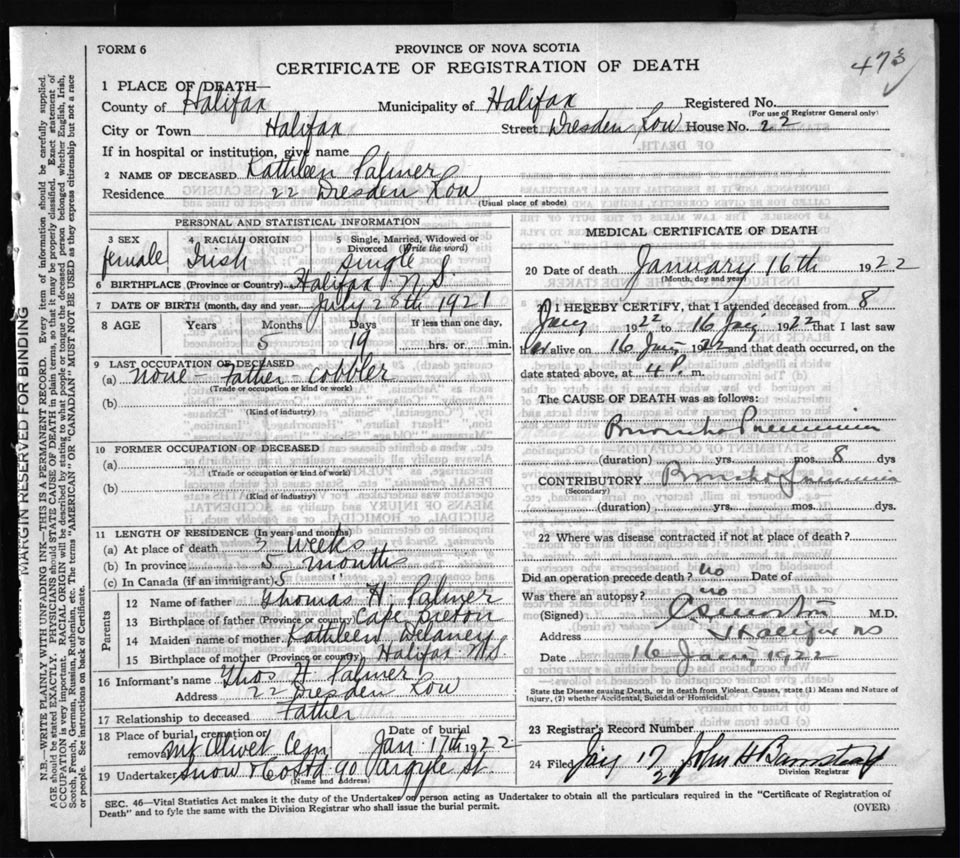 FORM 6
PROVINCE OF NOVA SCOTIA
CERTIFICATE OF REGISTRATION OF DEATH
473
1 PLACE OF DEATH—
County of Halifax Municipality of Halifax Registered No.
(For use of Registrar General only)
City or Town Halifax Street Dresden Row House No. 22
If in hospital or institution, give name
2 NAME OF DECEASED Kathleen Palmer
Residence 22 Dresden Row
(Usual place of abode)
PERSONAL AND STATISTICAL INFORMATION
3 SEX female 4 RACIAL ORIGIN Irish 5 Single, Married, Widowed or Divorced (Write the word) Single
6 BIRTHPLACE (Province or Country) Halifax N.S.
7 DATE OF BIRTH (month, day and year) July 28th 1921
8 AGE Years Months Days If less than one day,
5 19 hrs. or min.
9 LAST OCCUPATION OF DECEASED
(a) none - Father - cobbler
(Trade or occupation or kind of work)
(b)
(Kind of industry)
10 FORMER OCCUPATION OF DECEASED
(a)
(Trade or occupation or kind of work)
(b)
(Kind of industry)
11 LENGTH OF RESIDENCE (In years and months)
(a) At place of death 3 weeks
(b) In province 5 months
(c) In Canada (if an immigrant) 5 "
Parents
12 Name of father Thomas H. Palmer
13 Birthplace of father (Province or country) Cape Breton
14 Maiden name of mother Kathleen Delaney
15 Birthplace of mother (Province or country) Halifax N.S.
16 Informant's name Thos H. Palmer
Address 22 Dresden Row
17 Relationship to deceased Father
18 Place of burial, cremation or removal Mt Olivet Cem Date of burial Jan 17th 1922
19 Undertaker Snow & Co Ltd 90 Argyle St.
(Name and address)
MEDICAL CERTIFICATE OF DEATH
20 Date of death January 16th 1922
(Month, day and year)
21 I HEREBY CERTIFY, that I attended deceased from 8
1922 to 16 1922 that I last saw
her alive on 16 1922 and that death occurred, on the
date stated above, at 4 P. m.
The CAUSE OF DEATH was as follows:
Broncho Pneumonia
(duration) yrs. mos. 8 dys
CONTRIBUTORY Broncho Pneumonia
(Secondary)
(duration) yrs. mos. dys.
22 Where was disease contracted if not at place of death?
Did an operation precede death? no Date of
Was there an autopsy? no
(Signed) M.D.
Address Halifax NS
Date 16 1922
State the Disease causing Death, or in death from Violent Causes, state (1) Means and Nature of
Injury, (2) whether Accidental, Suicidal or Homicidal.
23 Registrar's Record Number
24 Filed 17 22 John H Barnstead
Division Registrar
SEC. 46—Vital Statistics Act makes it the duty of the Undertaker or person acting as Undertaker to obtain all the particulars required in the "Certificate of Registration of
Death" and to fyle the same with the Division Registrar who shall issue the burial permit.
(OVER)
MARGIN RESERVED FOR BINDING
N.B.—WRITE PLAINLY WITH UNFADING INK—THIS IS A PERMANENT RECORD. Every item of information should be carefully supplied.
AGE should be stated EXACTLY. PHYSICIANS should STATE CAUSE OF DEATH in plain terms, so that it may be properly classified. Exact statement of
OCCUPATION is very important. RACIAL ORIGIN will be described by stating to what people or tongue the deceased person belonged whether English, Irish,
Scotch, French, German, Russian, Ruthenian, etc. The terms "AMERICAN" OR "CANADIAN" MUST NOT BE USED as they express citizenship but not a race
or people. See instructions on back of Certificate.